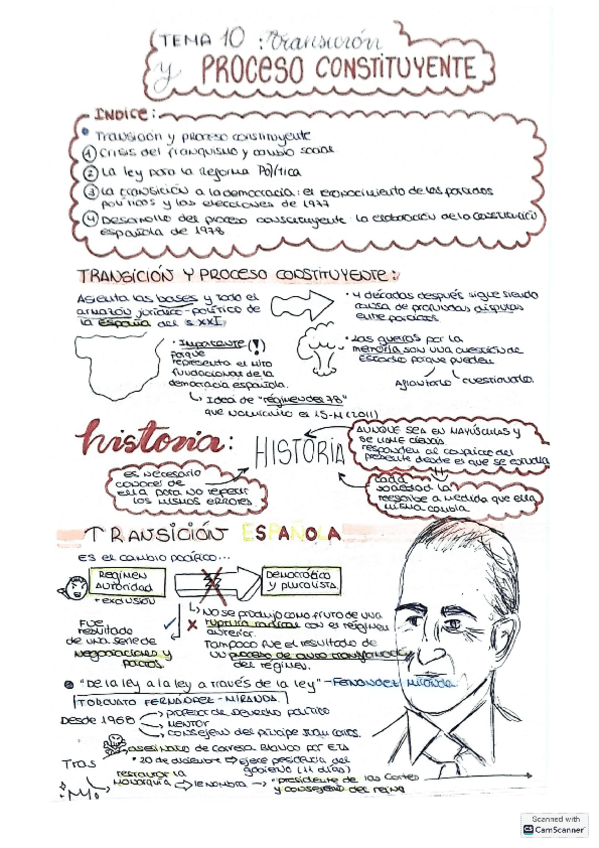 TEMA 10: transición
y PROCESO CONSTITUYENTE
INDICE:
Transición y proceso constituyente
1 Crisis del franquismo y cambio social
2 La ley para la Reforma Política
3 La transición a la democracia: el reconocimiento de los partidos
políticos y las elecciones de 1977
4 Desarrollo del proceso constituyente. La elaboración de la constitución
española de 1978
TRANSICIÓN Y PROCESO CONSTITUYENTE:
Asienta las bases y todo el
armazón jurídico-político de
la españa del s.XXI
• 4 décadas después sigue siendo
causa de profundas disputas
entre partidos
• Importante (!)
porque
representa el mito
fundacional de la
democracia española.
↳ Idea de "régimen del 78"
que el 15-M (2011)
• Las guerras por la
memoria son una cuestión de
estado porque pueden
cuestionarla
historia:
HISTORIA
AUNQUE SEA EN MAYÚSCULAS Y
SE LLAME CIENCIA
responden al del
presente desde el que se estudia
es necesario
conocer de
ella para no repetir
los mismos errores
cada
sociedad la
reescribe a medida que ella
misma cambia
TRANSICIÓN ESPAÑOLA
ES EL CAMBIO PACÍFICO...
REGIMEN
AUTORIDAD
+ exclusión
DEMOCRÁTICO
y pluralista
↳ No se produjo como fruto de una
ruptura radical con el régimen
anterior.
Tampoco fue el resultado de
un proceso de auto transformación
del régimen.
Fue
resultado
de una serie de
negociaciones y
pactos
"De la ley a la ley a través de la ley" - Fernández Miranda
TORCUATO FERNÁNDEZ-MIRANDA
Desde 1968
→ profesor de derecho político
→ mentor
→ consejero del príncipe Juan Carlos
asesinato de Carrero Blanco por ETA
Tras
• 20 de diciembre ⇒ ejerce presidencia del
gobierno (11 días)
restaurar la
monarquía → le nombra → "presidente de las Cortes
y consejero del reino
Scanned with
CS CamScanner